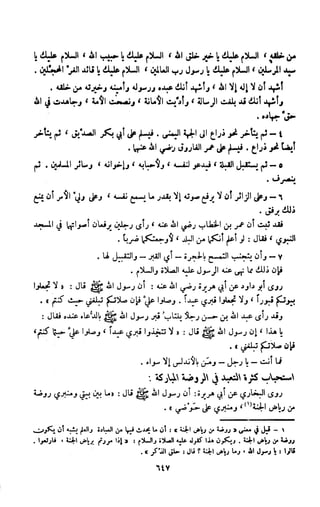 من خلقه ، السلام عليك يا خير خلق الله ، السلام عليك يا حبيب الله ، السلام عليك يا
سيد المرسلين ، السلام عليك يا رسول رب العالمين ، السلام عليك يا قائد الغر المحجلين .
أشهد أن لا إله إلا الله ، وأشهد أنك عبده ورسوله وأمينه وخيرته من خلقه .
وأشهد أنك قد بلغت الرسالة ، وأديت الأمانة ، ونصحت الأمة ، وجاهدت في الله
حق جهاده .
٤ — ثم يتأخر نحو ذراع إلى الجهة اليمنى ، فيسلم على أبي بكر الصديق ، ثم يتأخر
أيضاً نحو ذراع ، فيسلم على عمر الفاروق رضي الله عنهما .
٥ — ثم يستقبل القبلة ، فيدعو لنفسه ، ولأحبابه ، وإخوانه ، وسائر المسلمين . ثم
ينصرف .
٦ — وعلى الزائر أن لا يرفع صوته إلا بقدر ما يسمع نفسه ، وعلى ولي الأمر أن يمنع
ذلك برفق .
فقد ثبت أن عمر بن الخطاب رضي الله عنه ، رأى رجلين يرفعان أصواتهما في المسجد
النبوي ، فقال : لو أعلم أنكما من البلد ، لأوجعتكما ضرباً .
٧ — وأن يتجنب التمسح بالحجرة — أي القبر — والتقبيل لها .
فإن ذلك مما نهى عنه الرسول عليه الصلاة والسلام .
روى أبو داود عن أبي هريرة رضي الله عنه : أن رسول الله ﷺ قال : « لا تجعلوا
بيوتكم قبوراً ، ولا تجعلوا قبري عيداً . وصلوا علي فإن صلاتكم تبلغني حيث كنتم » .
وقد رأى عبد الله بن حسن رجلاً ينتاب قبر رسول الله ﷺ بالدعاء عنده ، فقال :
يا هذا ، إن رسول الله ﷺ قال : « لا تتخذوا قبري عيداً ، وصلوا علي حيث كنتم ،
فإن صلاتكم تبلغني » .
فما أنت — يا رجل — ومن بالأندلس إلا سواء .
استحباب كثرة التعبد في الروضة المباركة :
روى البخاري عن أبي هريرة : أن رسول الله ﷺ قال : « ما بين بيتي ومنبري روضة
من رياض الجنة (١) ، ومنبري على حوضي » .
١ — قيل في معنى « روضة من رياض الجنة » : أن ما يحدث فيها من العبادة والعلم يشبه أن يكون
روضة من رياض الجنة . ويكون هذا كقوله عليه الصلاة والسلام : « إذا مررتم برياض الجنة ، فارتعوا .
قالوا : يا رسول الله ، وما رياض الجنة ؟ قال : حلق الذكر » .
٦٤٧